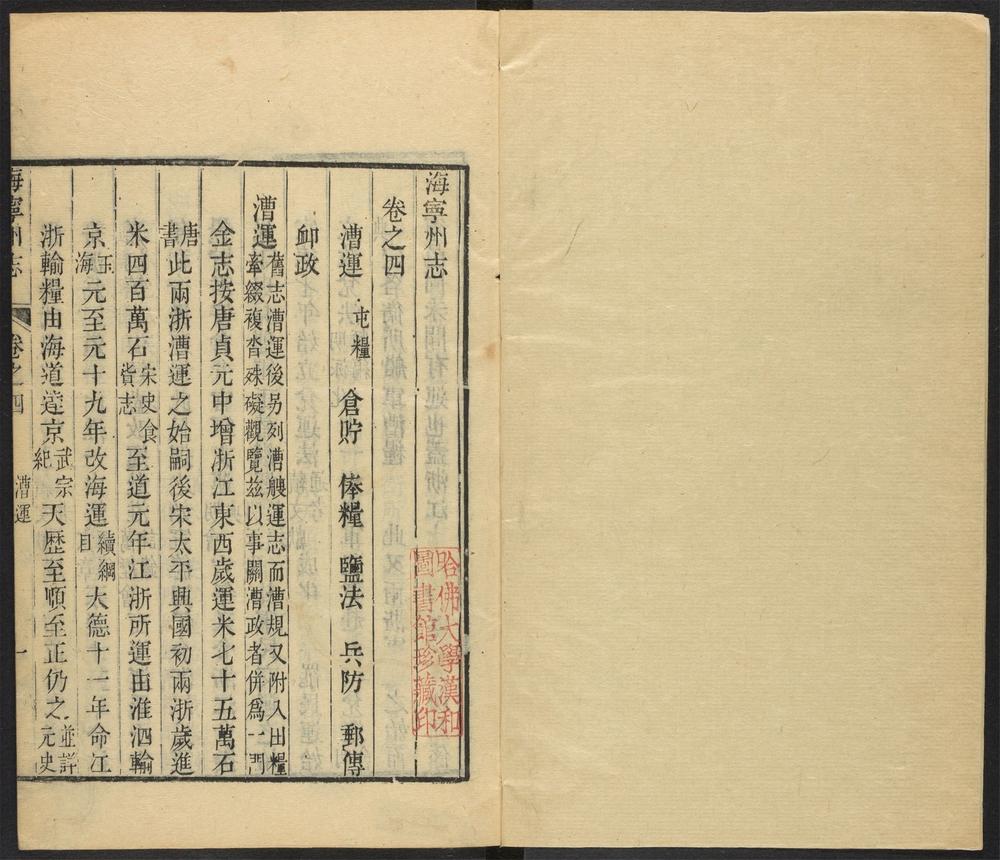 海寧州志
卷之四
漕運 屯糧 倉貯 俸糧 鹽法 兵防 郵傳
卹政
漕運 舊志漕運後另列漕艘運志而漕規又附入田糧
牽綴複沓殊礙觀覽茲以事關漕政者併爲一門
金志按唐貞元中增浙江東西歲運米七十五萬石
唐書 此兩浙漕運之始嗣後宋太平興國初兩浙歲進
米四百萬石 宋史食貨志 至道元年江浙所運由淮泗輸
京 玉海 元至元十九年改海運 續綱目 大德十一年命江
浙輸糧由海道達京 武宗紀 天歷至順至正仍之 並詳元史
海寧州志 卷之四 漕運 一
哈佛大學漢和
圖書館珍藏印